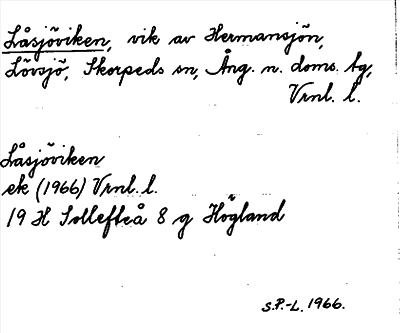 Låsjöviken, vik av Hermansjön,
Lövsjö, Skorpeds sn, Ång. n. doms. tg,
Vrnl. l.
Låsjöviken
ek (1966) Vrnl. l.
19 H Sollefteå 8 g Högland
S.P.-L. 1966.